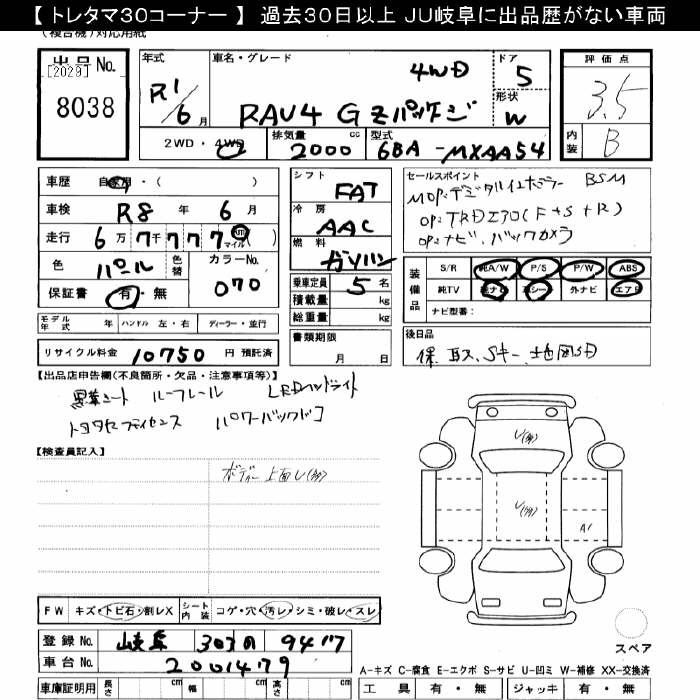 【 トレタマ30コーナー 】 過去30日以上 JU岐阜に出品歴がない車両
(複合機)対応用紙
出品 No. [2029] 8038
年式 R1/6 月
車名・グレード 4WD
RAV4 G Zパッケージ
ドア 5
形状 W
2WD ・ 4WD 排気量 2000 cc 型式 6BA-MXAA54
評価点 3.5
内装 B
車歴 自家用・( )
車検 R8 年 6 月
走行 6 万 7 千 7 7 7 km マイル
色 パール 色替 カラーNo. 070
保証書 有・無
シフト FAT
冷房 AAC
燃料 ガソリン
乗車定員 5 名
積載量 kg
総重量 kg
セールスポイント BSM
MOP:デジタルインナーミラー
OP:TRDエアロ(F+S+R)
OP:ナビ、バックカメラ
装備品 S/R 純A/W P/S P/W ABS
純TV 純ナビ 革シート 外ナビ エアB
ナビ型番:
モデル年式 年 ハンドル 左・右 ディーラー・並行
リサイクル料金 10750 円 預託済
書類期限 月 日
後日品
保、取、Sキー、地図SD
【出品店申告欄(不良箇所・欠品・注意事項等)】
黒革シート ルーフレール LEDヘッドライト
トヨタセーフティセンス パワーバックドア
【検査員記入】
ボディー上面U(多)
U(多)
U(多)
A1
FW キズ・トビ石・割レX シート内装 コゲ・穴・汚レ・シミ・破レ・スレ
登録 No. 岐阜 303 の 9417
車台 No. 2001479
スペア
A-キズ C-腐食 E-エクボ S-サビ U-凹ミ W-補修 XX-交換済
車庫証明用 長さ cm 幅 cm 高さ cm 工具 有・無 ジャッキ 有・無